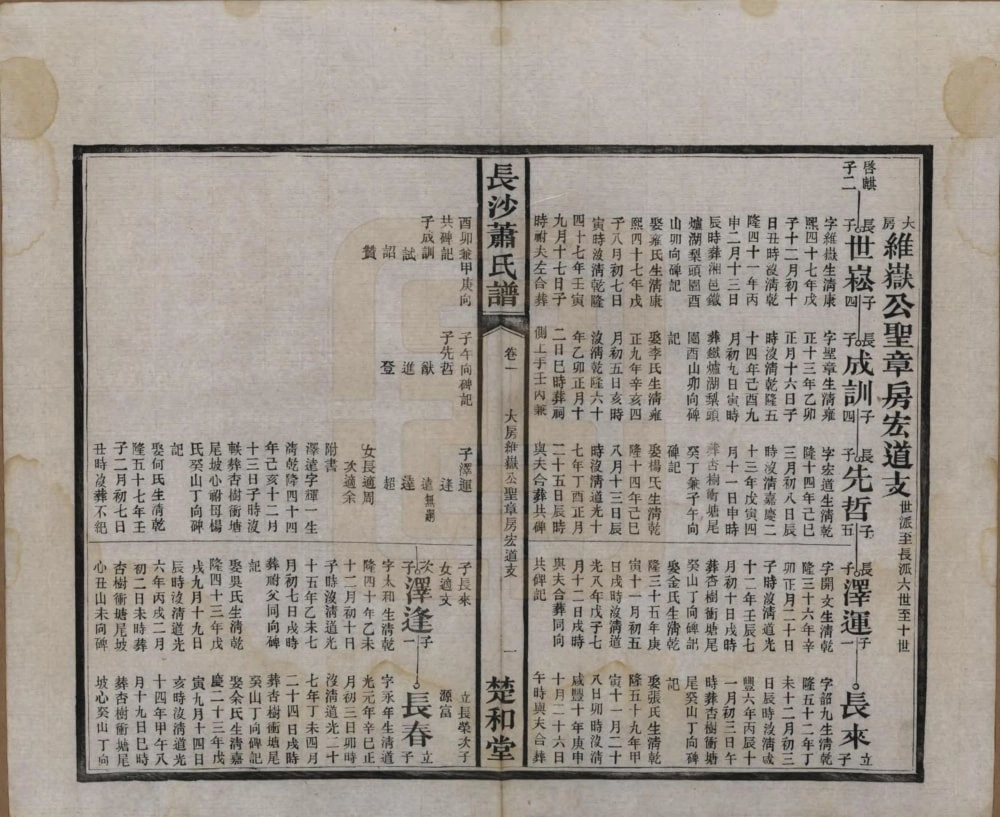 大房維嶽公聖章房宏道支世派至長派六世至十世
啓麒子二
長子世崧子四
字維嶽生清康
熙四十七年戊
子十二月初十
日丑時沒清乾
隆四十一年丙
申二月十三日
辰時葬湘邑鐵
爐湖梨頭圈酉
山卯向碑記
娶雍氏生清康
熙四十七年戊
子八月初七日
寅時沒清乾隆
四十七年壬寅
九月十七日子
時祔夫左合葬
長子成訓子四
字聖章生清雍
正十三年乙卯
正月十六日子
時沒清乾隆五
十四年己酉九
月初九日寅時
葬鐵爐湖梨頭
圈酉山卯向碑
記
娶李氏生清雍
正九年辛亥四
月初五日亥時
沒清乾隆六十
年乙卯正月十
二日巳時葬祠
側上手壬丙兼
長子先哲子五
字宏道生清乾
隆十四年己巳
三月初八日辰
時沒清嘉慶二
十三年戊寅四
月十一日申時
葬杏樹衝塘尾
癸丁兼子午向
碑記
娶楊氏生清乾
隆十四年己巳
八月十三日辰
時沒清道光十
七年丁酉正月
二十五日辰時
與夫合葬共碑
長子澤運子一
字開文生清乾
隆三十六年辛
卯正月二十日
子時沒清道光
十二年壬辰七
月初十日戌時
葬杏樹衝塘尾
癸山丁向碑記
娶金氏生清乾
隆三十五年庚
寅十一月初五
日戌時沒清道
光八年戊子七
月十二日戌時
與夫合葬同向
共碑記
長來立子
字韶九生清乾
隆五十二年丁
未十二月初三
日辰時沒清咸
豐六年丙辰十
一月初三日午
時葬杏樹衝塘
尾癸山丁向碑
記
娶張氏生清乾
隆五十九年甲
寅十一月二十
八日卯時沒清
咸豐十年庚申
十月二十六日
午時與夫合葬
長沙蕭氏譜
卷一
大房維嶽公聖章房宏道支
一
楚和堂
酉卯兼甲庚向
共碑記
子成訓
試
詔
贊
子午向碑記
子先哲
猷
進
登
子澤運
逢
遠無嗣
達
超
女長適周
次適余
附書
澤遠字輝一生
清乾隆四十四
年己亥十二月
十三日子時沒
軼葬杏樹衝塘
尾坡心祔母楊
氏癸山丁向碑
記
娶何氏生清乾
隆五十七年壬
子二月初七日
丑時沒葬不紀
子長來
女適文
次子澤逢子一
字太和生清乾
隆四十年乙未
十二月初十日
子時沒清道光
十五年乙未七
月初七日戌時
葬祔父同向碑
記
娶吳氏生清乾
隆四十三年戊
戌九月十九日
辰時沒清道光
六年丙戌二月
初二日未時葬
杏樹衝塘尾坡
心丑山未向碑
立長榮次子
源富
長春立子
字永年生清道
光元年辛巳正
月初三日卯時
沒清道光二十
七年丁未四月
二十四日戌時
葬杏樹衝塘尾
癸山丁向碑記
娶余氏生清嘉
慶二十三年戊
寅九月十四日
亥時沒清道光
十四年甲午八
月十九日巳時
葬杏樹衝塘尾
坡心癸山丁向